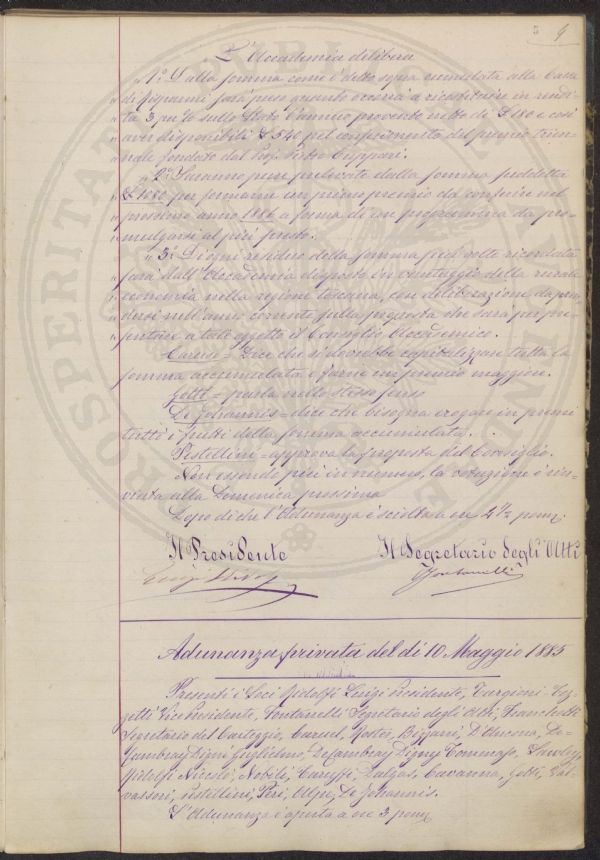 4
L'Accademia delibera
„1.° Dalla somma come è detto sopra cumulata alla Cassa
„di risparmi sarà preso quanto occorra a ricostituire in rendi-
„ta 3 per % sullo Stato l'annuo provento netto di £ 180 e così
„aver disponibili £ 540 pel conferimento del premio trien-
„nale fondato dal Prof. Pietro Cipponi.
„2.° Saranno pure prelevate dalla somma suddetta
„£ 1000 per formarne un primo premio da conferire nel
„prossimo anno 1886 a forma di un programma da pro-
„mulgarsi al più presto.
„3.° Di ogni residuo della somma più volte ricordata
„sarà dall'Accademia disposto in vantaggio della rurale
„economia nella regione toscana, con deliberazione da pren-
„dersi nell'anno corrente sulla proposta che sarà per pre-
„sentare a tale oggetto il Consiglio Accademico.
Caruso = Dice che si dovrebbe capitalizzare tutta la
somma accumulata e farne un premio maggiore.
Gotti = parla nello stesso senso
De Johannis = dice che bisogna erogare in premi
tutti i frutti della somma accumulata.
Pestellini = approva la proposta del Consiglio.
Non essendo più in numero, la votazione è rin-
viata alla Domenica prossima
Dopo di che l'Adunanza è sciolta a ore 4 ½ pom.
Il Presidente Il Segretario degli Atti
Luigi Ridolfi CFontanelli
Adunanza privata del dì 10 Maggio 1885
Presenti i Soci Ridolfi Luigi Presidente, Targioni Toz-
zetti Vice Presidente, Fontanelli Segretario degli Atti, Franchetti
Segretario del Carteggio, Caruel, Rossi, Bizzarri, D'Ancona, De
Cambray Digny Guglielmo, De Cambray Digny Tommaso,
Ridolfi Niccolò, Nobili, Dalgas, Cavanna, Gotti, Val-
vassori, Pestellini, Peri, Alpe, De Johannis.
L'Adunanza è aperta a ore 3 pom.